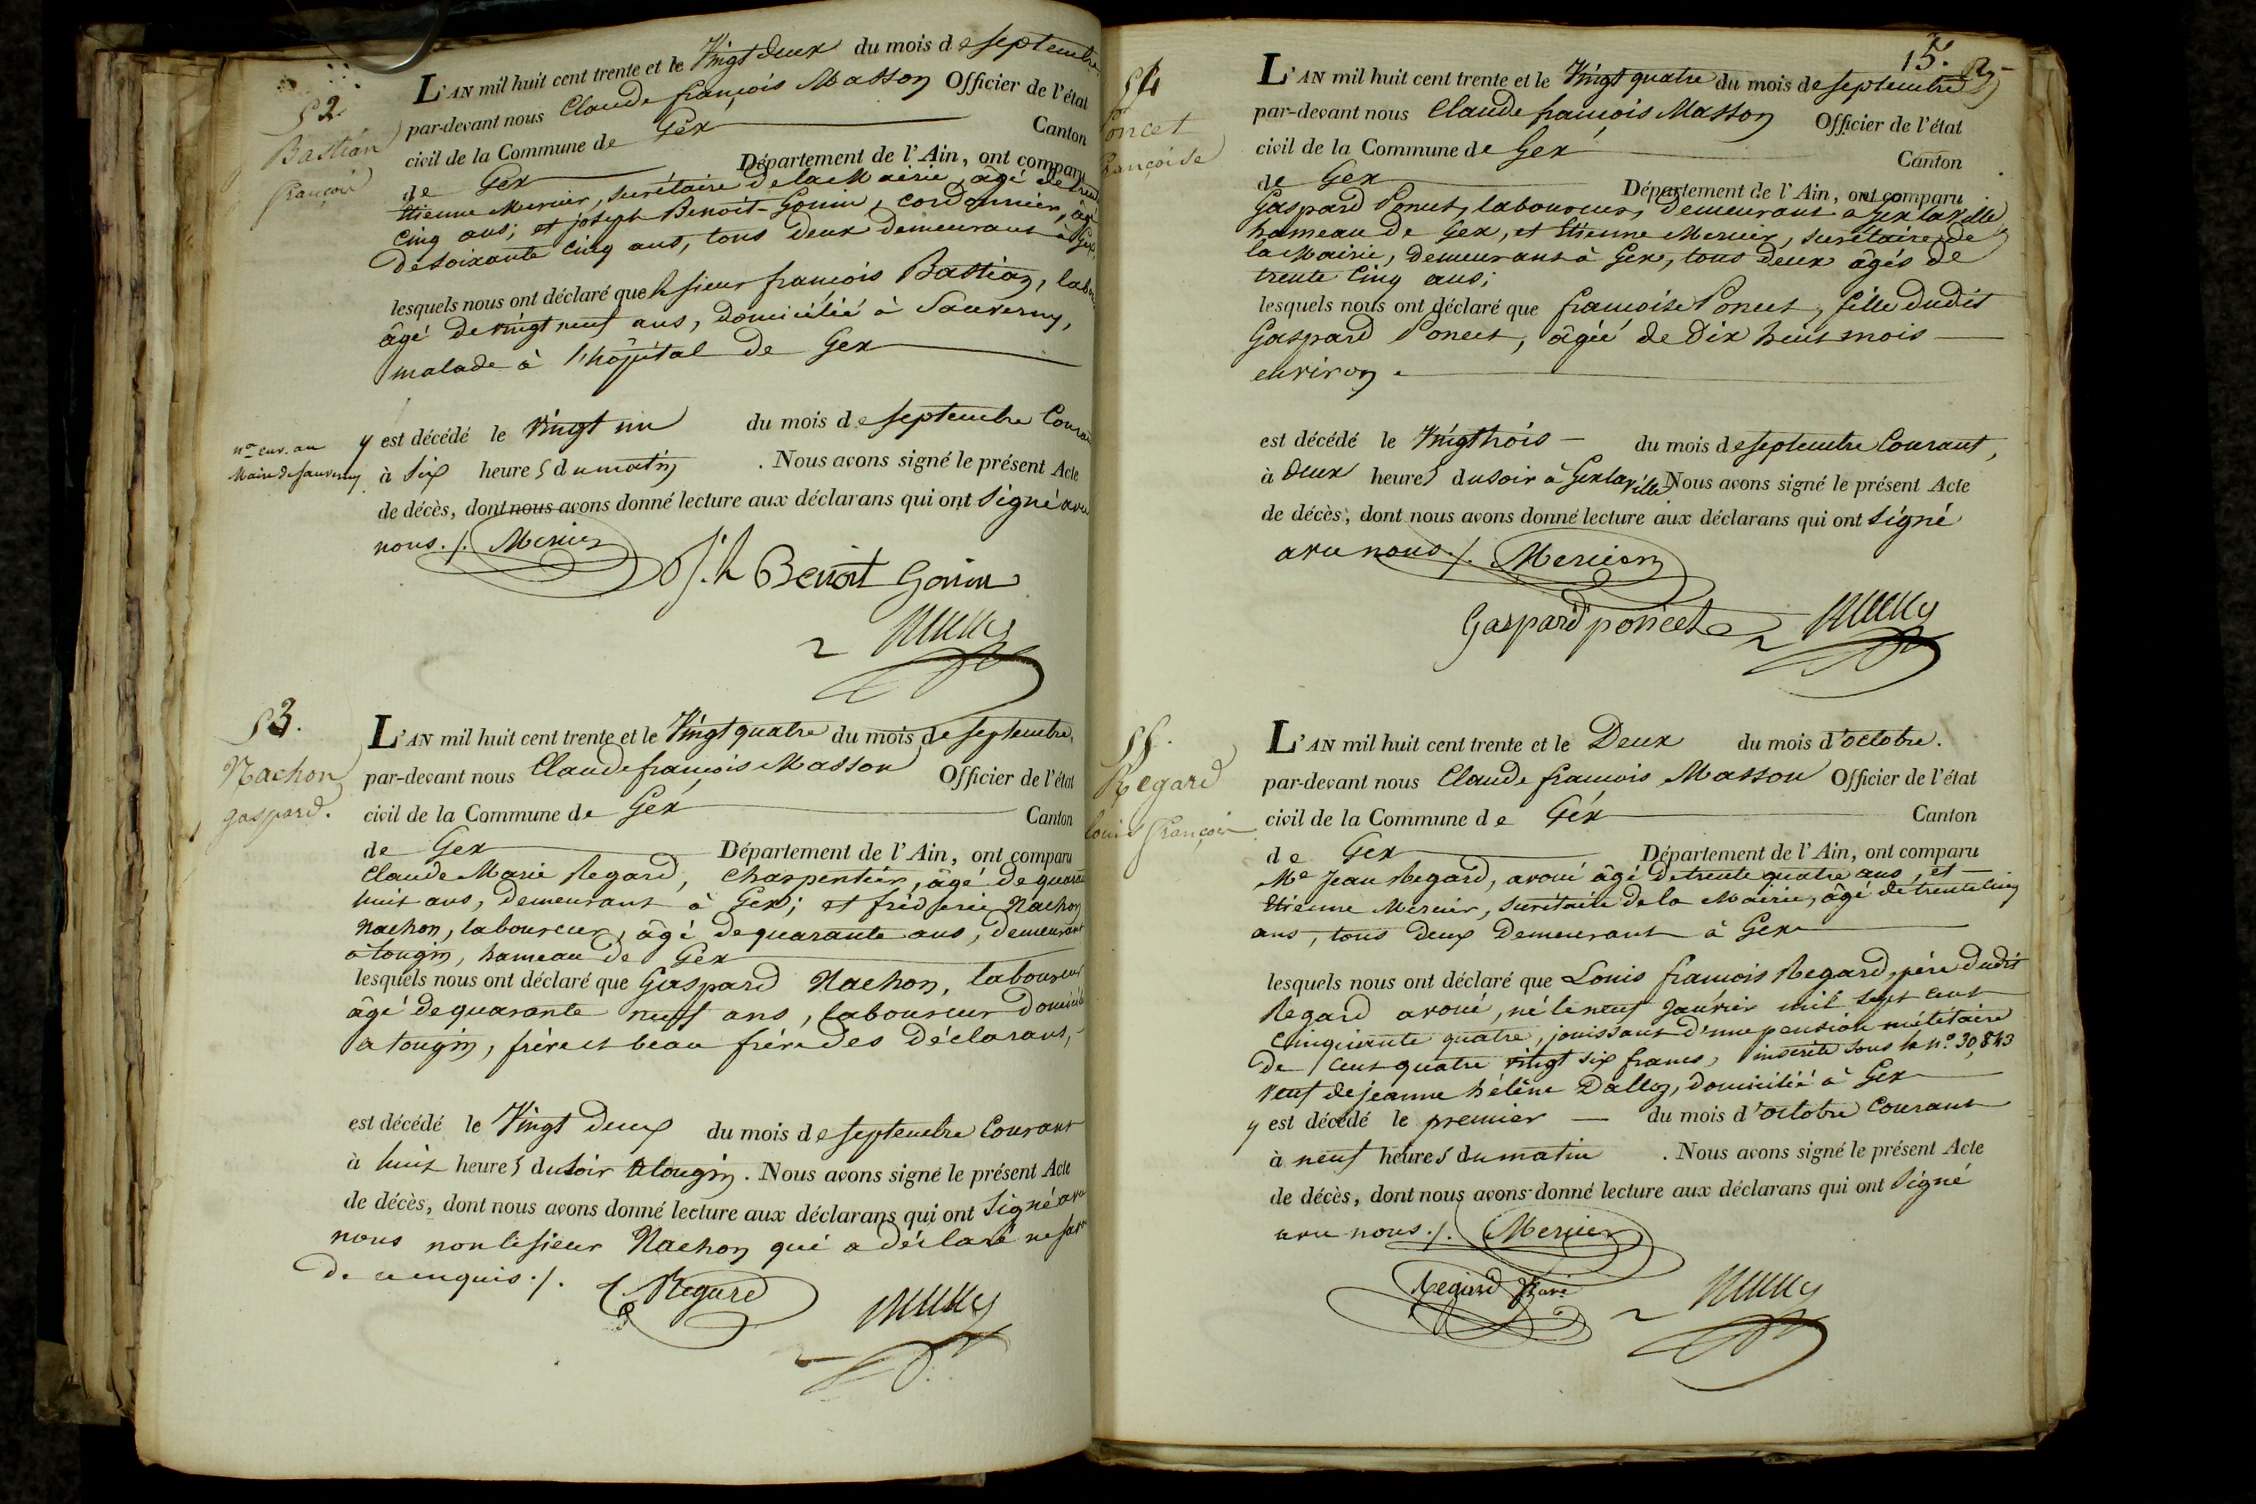 52
Bastian
françois
L'AN mil huit cent trente et le Vingt deux du mois de septembre
par-devant nous Claude françois Masson Officier de l'état
civil de la Commune de Gex Canton
de Gex Département de l'Ain, ont comparu
Etienne Mercier, secrétaire de la Mairie, âgé de trente
cinq ans; et joseph Benoit-Gonin, cordonnier, âgé
de soixante cinq ans, tous deux demeurant à Gex,
lesquels nous ont déclaré que le sieur françois Bastian,
âgé de vingt neuf ans, domicilié à Sauverny,
malade à l'hôpital de Gex
y est décédé le vingt un du mois de septembre Courant
à six heures du matin . Nous avons signé le présent Acte
de décès, dont nous avons donné lecture aux déclarans qui ont signé avec
nous ./. Mercier
Maire de Sauverny
Jh Benoit Gonin
53.
Nachon
gaspard.
L'AN mil huit cent trente et le Vingt quatre du mois de septembre,
par-devant nous Claude françois Masson Officier de l'état
civil de la Commune de Gex Canton
de Gex Département de l'Ain, ont comparu
Claude Marie Regard, Charpentier, âgé de quarante
huit ans, demeurant à Gex; et fréderic Nachon
Nachon, laboureur, âgé de quarante ans, demeurant
à tougin, hameau de Gex
lesquels nous ont déclaré que Gaspard Nachon, laboureur
âgé de quarante neuf ans, laboureur domicilié
a tougin, frère et beau frère des Déclarans,
est décédé le Vingt Deux du mois de septembre Courant
à huit heures du soir a tougin. Nous avons signé le présent Acte
de décès, dont nous avons donné lecture aux déclarans qui ont signé avec
nous non le sieur Nachon qui a déclaré ne savoir
de ce enquis ./. Regard
15.
54
Poncet
françoise
L'AN mil huit cent trente et le Vingt quatre du mois de septembre
par-devant nous Claude françois Masson Officier de l'état
civil de la Commune de Gex Canton
de Gex Département de l'Ain, ont comparu
Gaspard Poncet, laboureur, demeurant à Gex la ville
hameau de Gex, et Etienne Mercier, secrétaire de
la Mairie, demeurant à Gex, tous deux âgés de
trente cinq ans;
lesquels nous ont déclaré que françoise Poncet, fille dudit
Gaspard Poncet, âgée de Dix huit mois
environ.
est décédé le Vingt trois du mois de septembre Courant,
à deux heures du soir à Gex la ville Nous avons signé le présent Acte
de décès, dont nous avons donné lecture aux déclarans qui ont signé
avec nous ./. Mercier
Gaspard poncet
55.
Regard
louis françois
L'AN mil huit cent trente et le Deux du mois d'octobre.
par-devant nous Claude françois Masson Officier de l'état
civil de la Commune de Gex Canton
de Gex Département de l'Ain, ont comparu
Me Jean Regard, avoué âgé de trente quatre ans, et
Etienne Mercier, secrétaire de la Mairie, âgé de trente cinq
ans, tous deux demeurant à Gex
lesquels nous ont déclaré que Louis françois Regard, père dudit
Regard avoué, né le neuf Janvier mil sept cent
cinquante quatre, jouissant d'une pension militaire
de Cent quatre vingt six francs, inscrite sous le no. 30,843
veuf de jeanne hélène Dalloz, domicilié à Gex
y est décédé le premier du mois d'octobre Courant
à neuf heures du matin . Nous avons signé le présent Acte
de décès, dont nous avons donné lecture aux déclarans qui ont signé
avec nous ./. Mercier
Regard